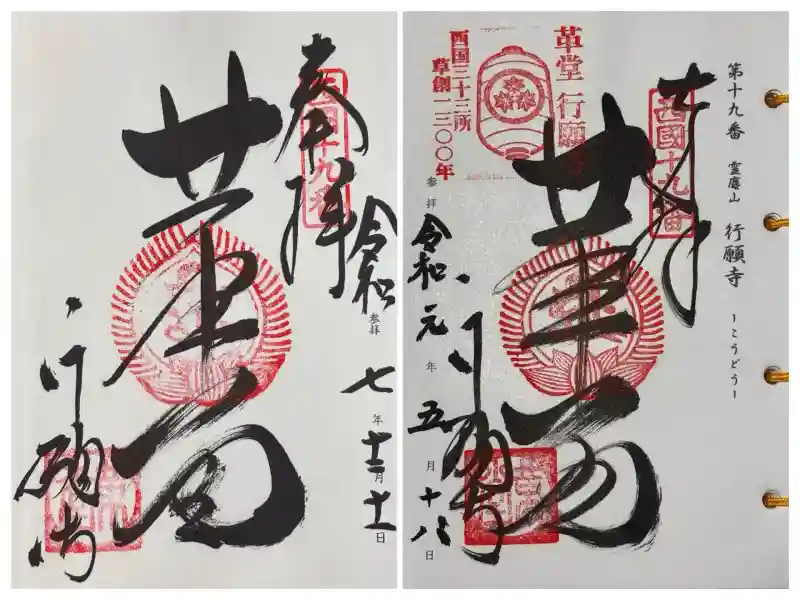 奉拝
西国十九番
令和
参拝
七年十二月十一日
革堂
行願寺
第十九番 靈麀山 行願寺 ーこうどうー
奉拝
西國十九番
革堂 行願寺
西国三十三所
草創一三〇〇年
革堂
行願寺
参拝
令和元年五月十八日